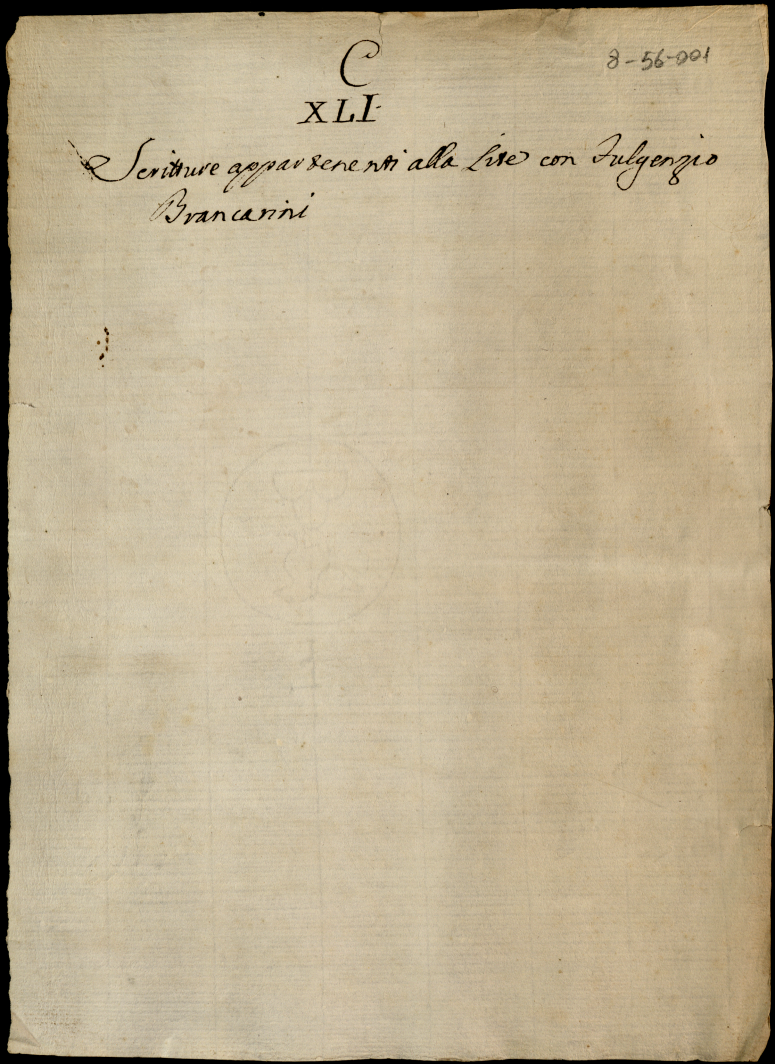 C
8-56-001
XLI
Scritture appartenenti alla Lite con Fulgenzio
Brancarini